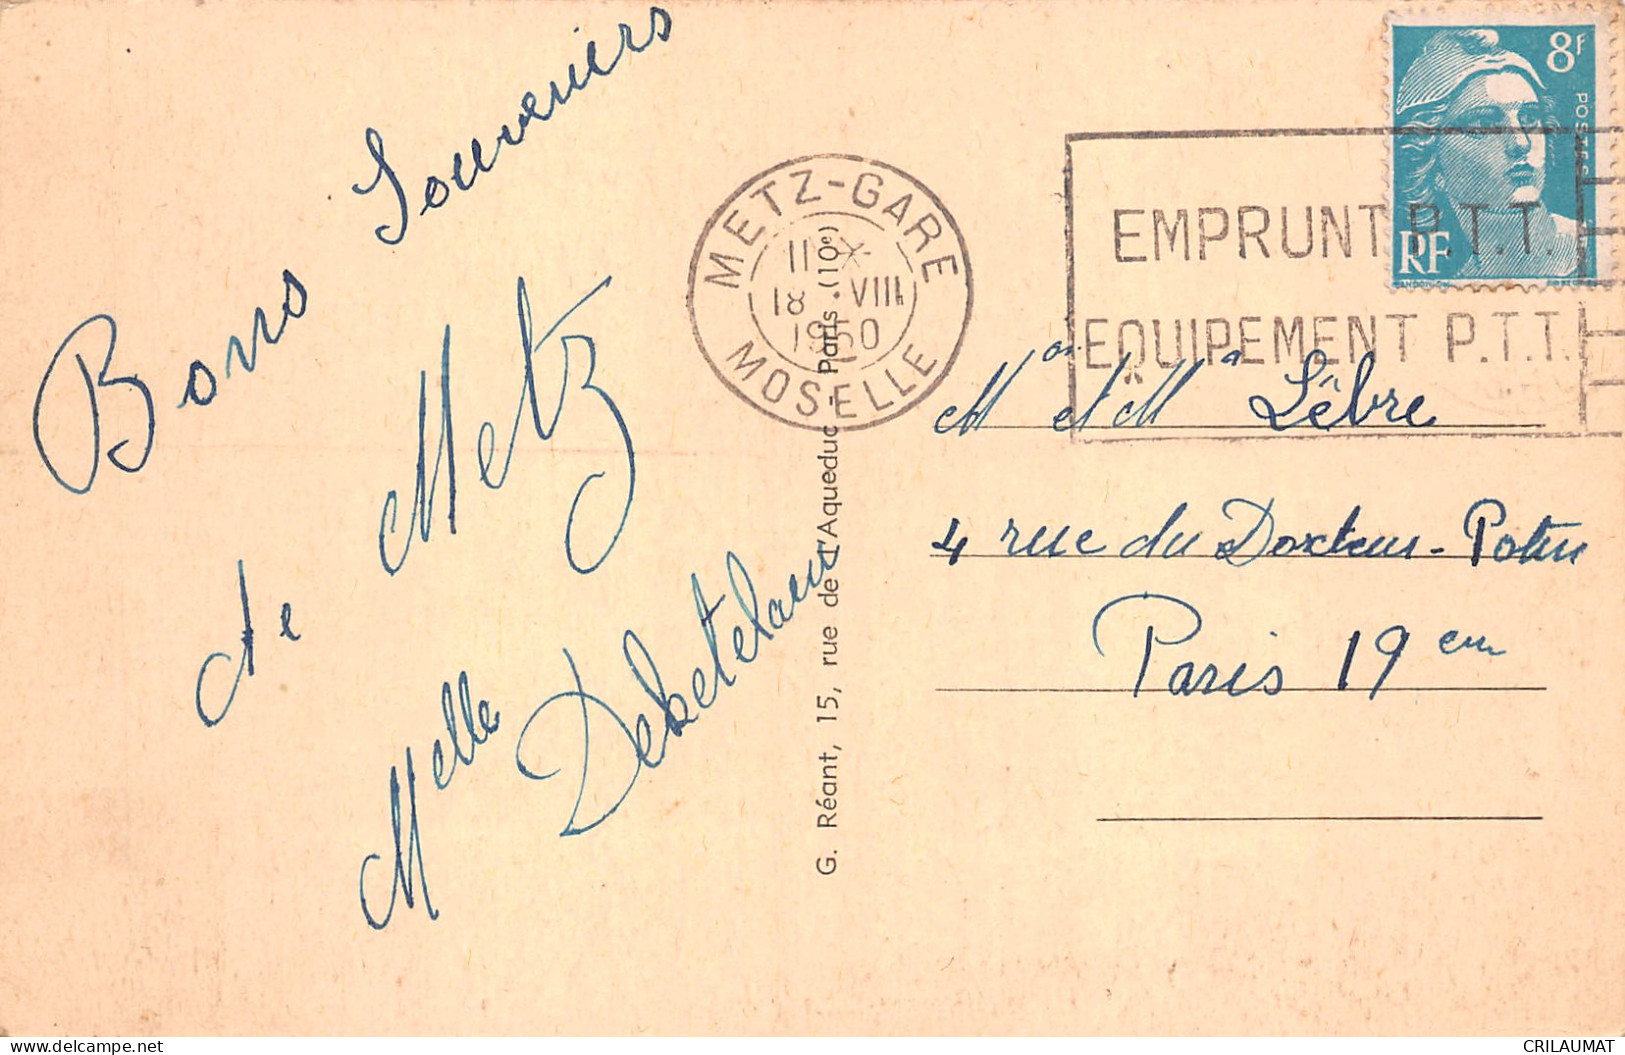 Bons Souvenirs
de Metz
Melle
METZ-GARE
11 X
18 VIII
1950
MOSELLE
8F
POSTES
RF
EMPRUNT P.T.T.
EQUIPEMENT P.T.T.
G. Réant, 15, rue de l'Aqueduc - Paris (10e)
Mon et Ma Lêbre
4 rue du Docteur-Potin
Paris 19em
CRILAUMAT